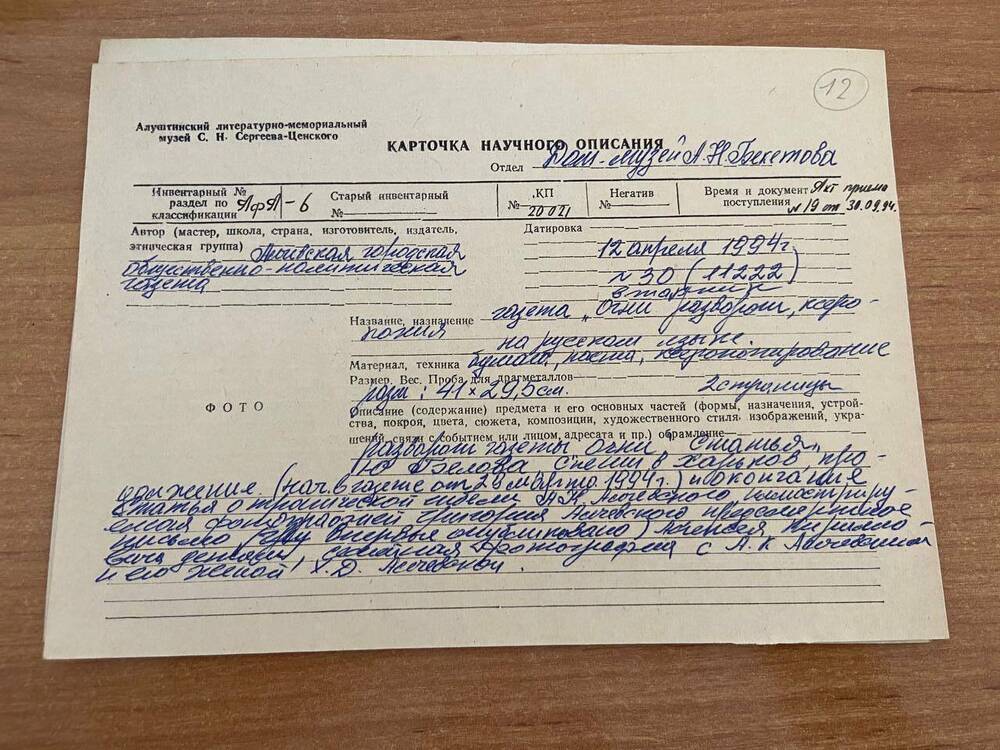 12
Алуштинский литературно-мемориальный
музей С. Н. Сергеева-Ценского
КАРТОЧКА НАУЧНОГО ОПИСАНИЯ
Отдел Дом-музей А.Н.Бекетова
Инвентарный №
раздел по
классификации АФА-6
Старый инвентарный
№
КП
№ 20021
Негатив
№
Время и документ Акт приема
поступления №19 от 30.09.94.
Автор (мастер, школа, страна, изготовитель, издатель,
этническая группа) городская
общественно-политическая
газета
Датировка
12 апреля 1994г
№30 (11222)
вторник
Название, назначение газета „Огни разворот, ксеро-
копия на русском языке.
Материал, техника бумага, паста, ксерокопирование
Размер. Вес. Проба для драгметаллов
разм: 41×29,5см. 2 страницы
ФОТО
Описание (содержание) предмета и его основных частей (формы, назначения, устрой-
ства, покроя, цвета, сюжета, композиции, художественного стиля, изображений, укра-
шений, связи с событием или лицом, адресата и пр.) обрамление
разворот газеты Огни Статья
Ю Белова в Харьков, про-
должение (нач. в газете от 28 марта 1994г.) и окончания
статья о трагической гибели А.К Алчевского,
фотографией Григория Алчевского предсмертное
письмо впервые опубликовано) Алексея Кирилло-
вича фотография с А.К Алчевским
и его женой Х.Д. Алчевской.